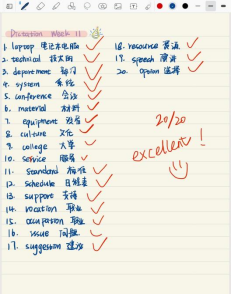 Dictation Week 11
1. laptop 笔记本电脑
2. technical 技术的
3. department 部门
4. system 系统
5. conference 会议
6. material 材料
7. equipment 设备
8. culture 文化
9. college 大学
10. service 服务
11. standard 标准
12. schedule 日程表
13. support 支持
14. vocation 职业
15. occupation 职业
16. issue 问题
17. suggestion 建议
18. resource 资源
19. speech 演讲
20. option 选择
20/20
excellent!